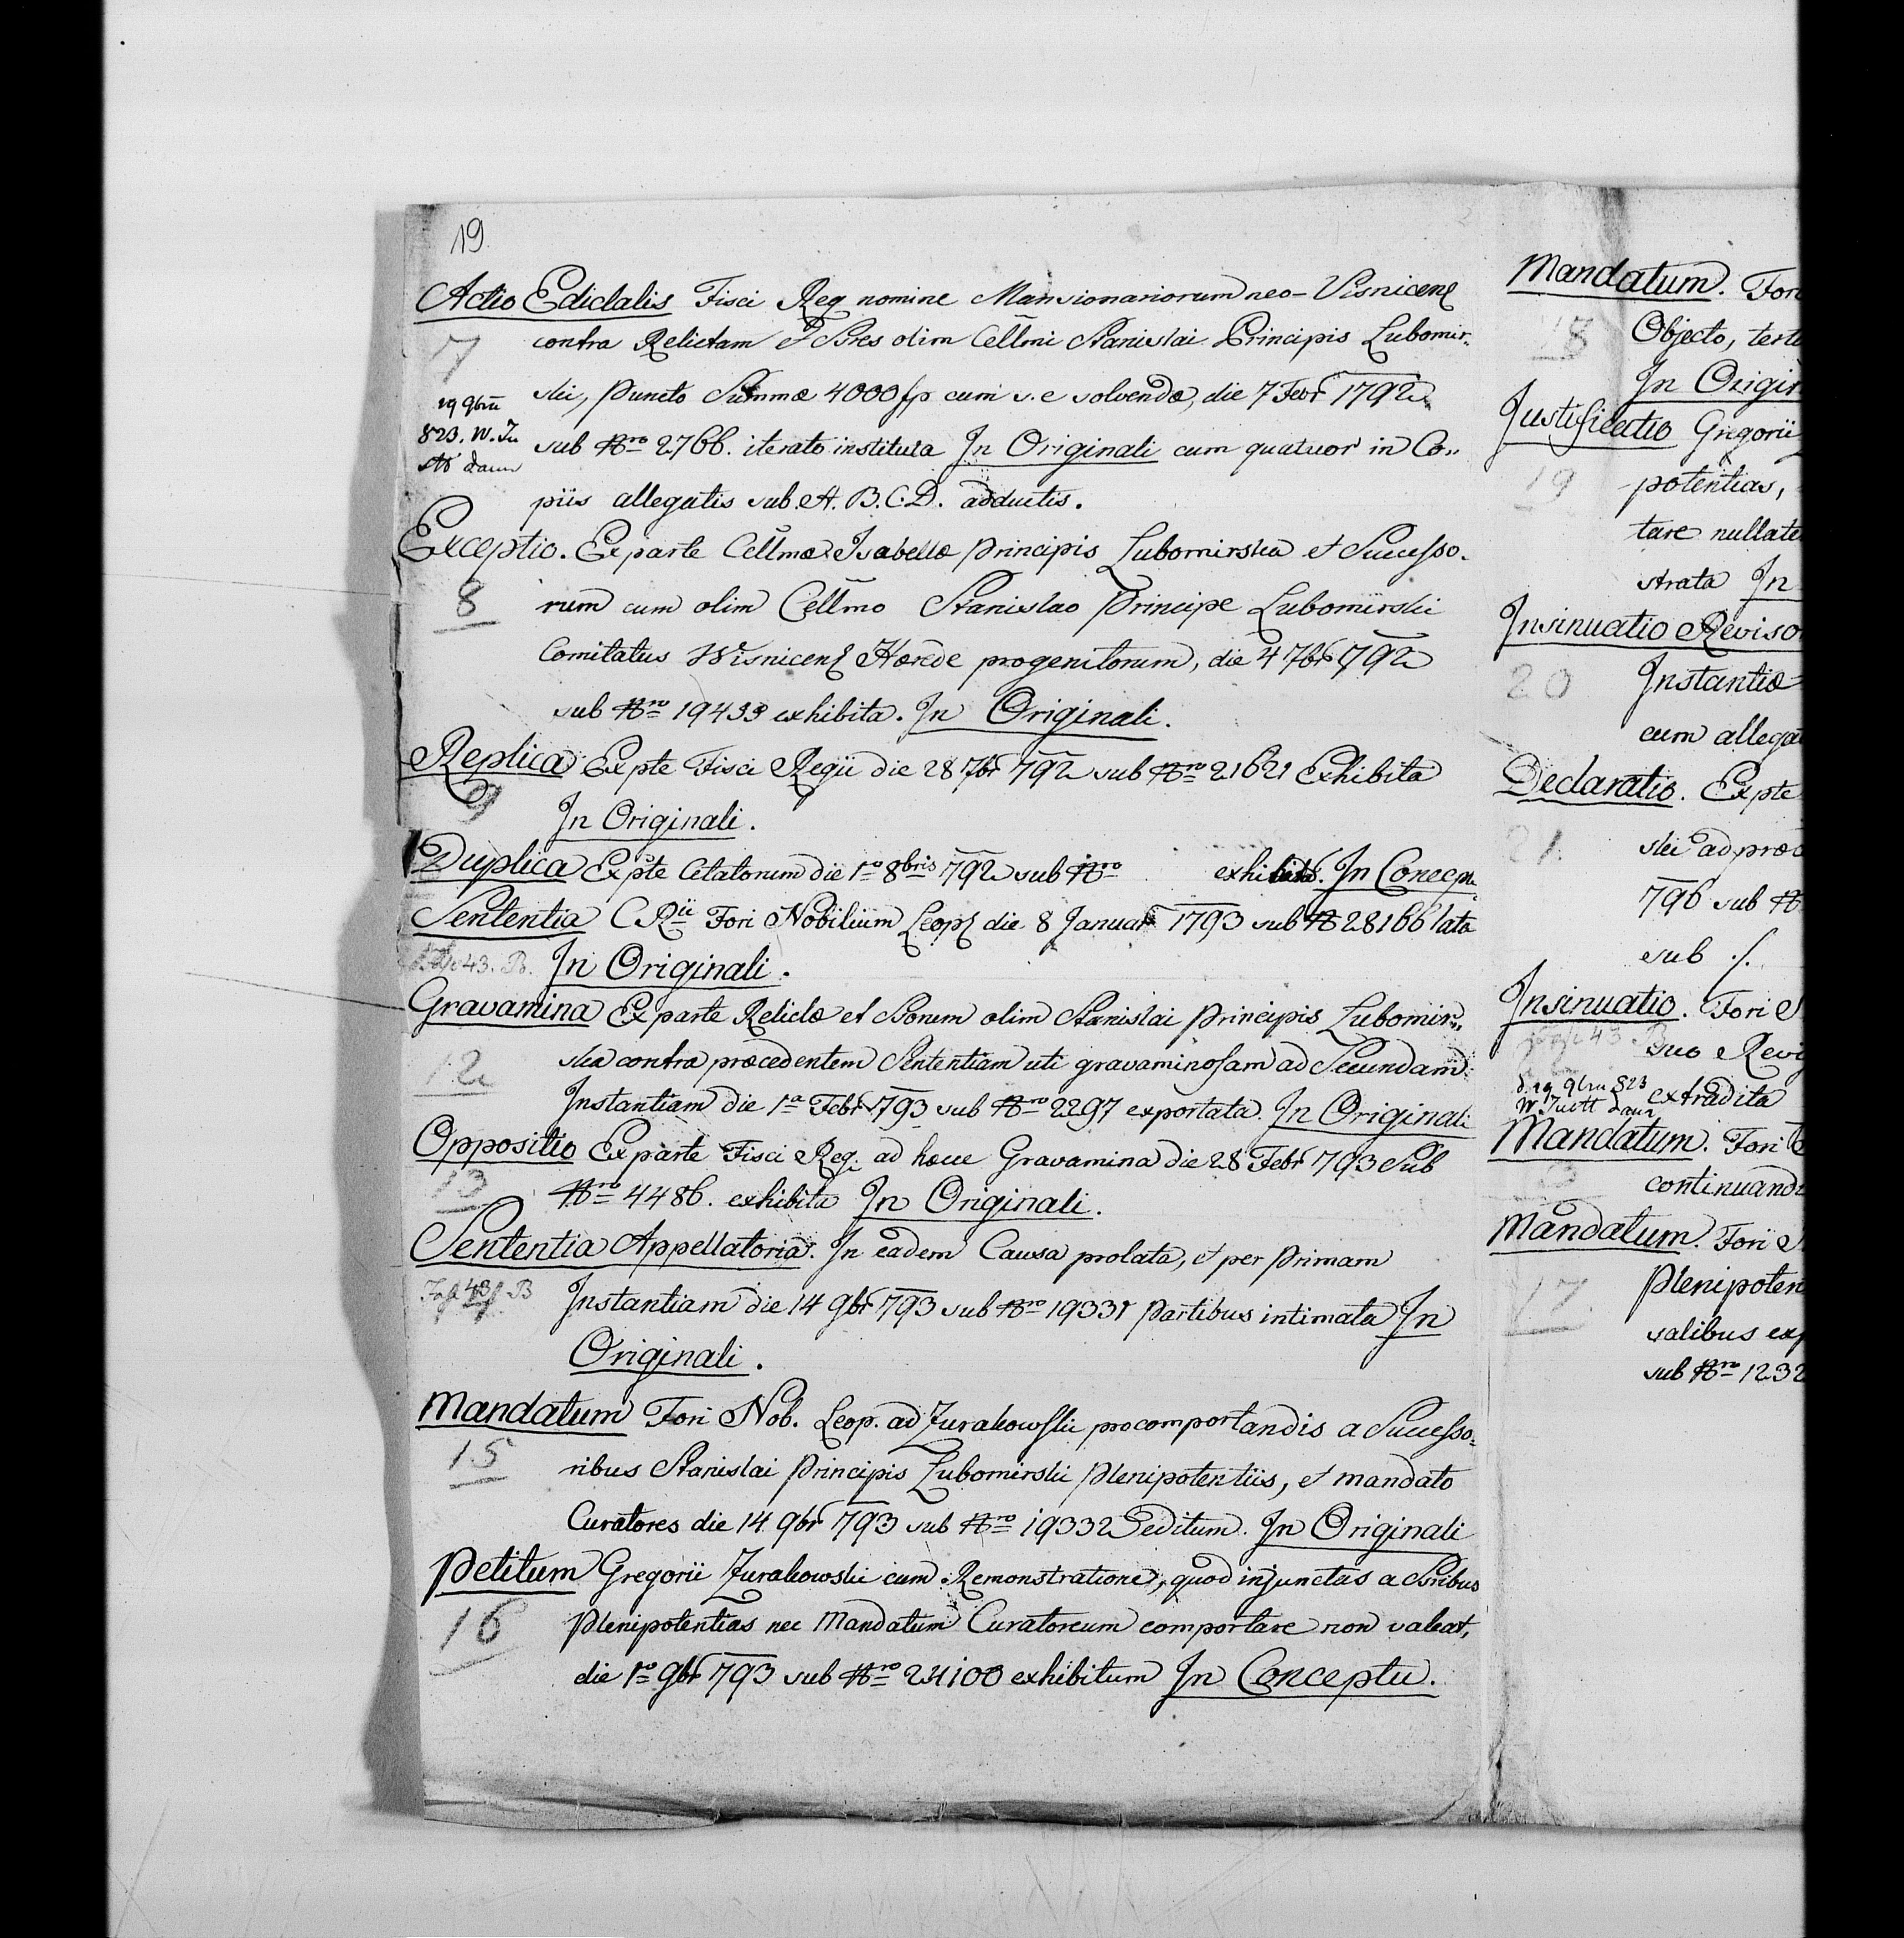 19
Actio Edictalis Fisci Reg nomine Mansionariorum neo-Visnicens
7
contra Relictam et Sbres olim Cellmi Stanislai Principis Lubomir-
ski, puncto Summæ 4000 fp cum s. c solvendæ, die 7 Febr 1792
19 9bris
823. W.
sub Nro 2766. iterato instituta In Originali cum quatuor in Co-
piis allegatis sub. A. B. C. D. adductis.
Exceptio. Ex parte Cellmæ Isabellæ Principis Lubomirska et Successo-
8
rum cum olim Cellmo Stanislao Principe Lubomirski
Comitatus Wisnicens Hærede progenitorum, die 4 7br 792
sub Nro 19433 exhibita. In Originali.
Replica Ex pte Fisci Regii die 28 7br 792 sub Nro 21621 Exhibita
9
In Originali.
Duplica Ex pte Citatorum die 1o 8bris 792 sub Nro exhibita. In Concep
Sententia C Rii Fori Nobilium Leops die 8 Januar 1793 sub N 28166 lata
43. B. In Originali.
Gravamina Ex parte Relictæ et Sborum olim Stanislai Principis Lubomir-
12
ska contra præcedentem Sententiam uti gravaminosam ad Secundam
Instantiam die 1a Febr 793 sub Nro 2297 exportata. In Originali
Oppositio Ex parte Fisci Reg. ad hæcce Gravamina die 28 Febr 793 Sub
13
Nro 4486. exhibita In Originali.
Sententia Appellatoria. In eadem Causa prolata, et per Primam
43 B
Instantiam die 14 9br 793 sub Nro 19331 Partibus intimata In
Originali.
Mandatum Fori Nob. Leop. ad Zurakowski pro comportandis a Successo-
15
ribus Stanislai Principis Lubomirski Plenipotentiis, et mandato
Curatores die 14 9br 793 sub Nro 19332 editum. In Originali
Petitum Gregorii Zurakowski cum Remonstratione, quod injunctas a Sbribus
16
Plenipotentias nec Mandatum Curatoreum comportare non valeat,
die 1o 9br 793 sub Nro 24100 exhibitum In Conceptu.
Mandatum. Fori
18
Objecto, terti
In Origin
Justificatio Gregorii
19
potentias,
tare nullate
strata In
Insinuatio Reviso
20
Instantiæ
cum allega
Declaratio. Ex pte
21.
ski ad præ
796 sub N
sub ·/.
Insinuatio. Fori
43 B
suo Revi
d. 19 9bris 823
extradita
Mandatum. Fori
continuand
Mandatum. Fori
17
Plenipoten
salibus exp
sub Nro 1232